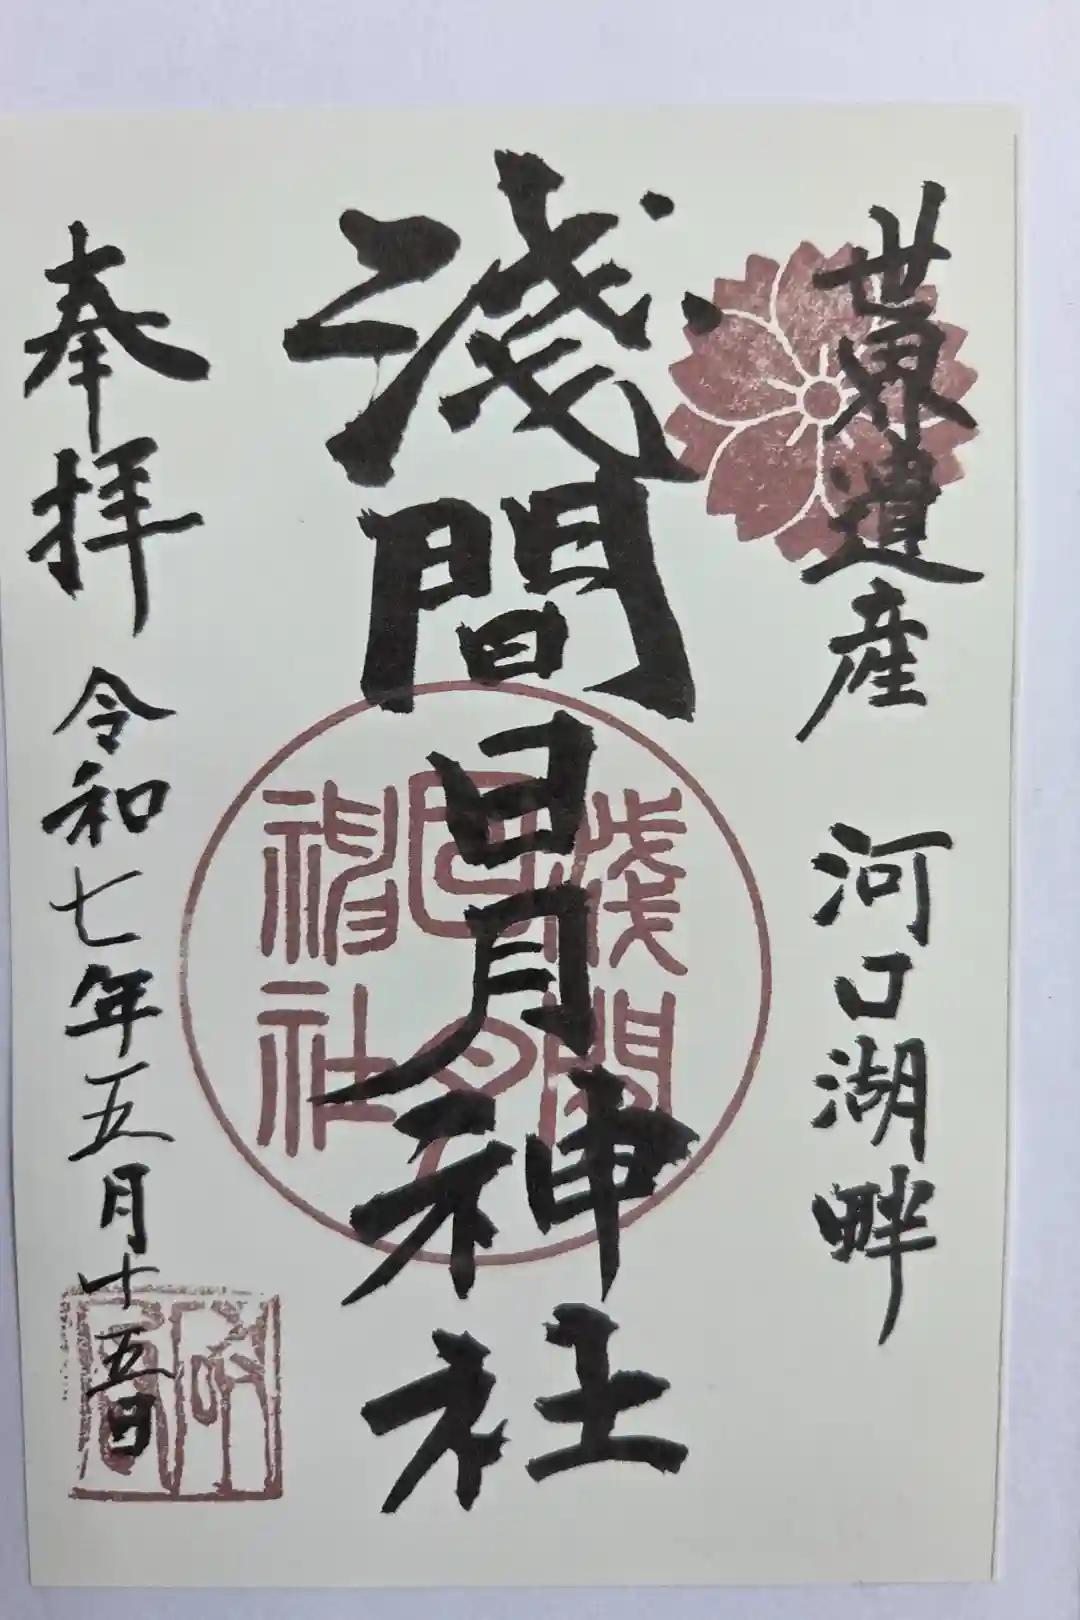 世界遺産 河口湖畔
淺間日月神社
奉拝 令和七年五月十五日
淺間
日月
神社